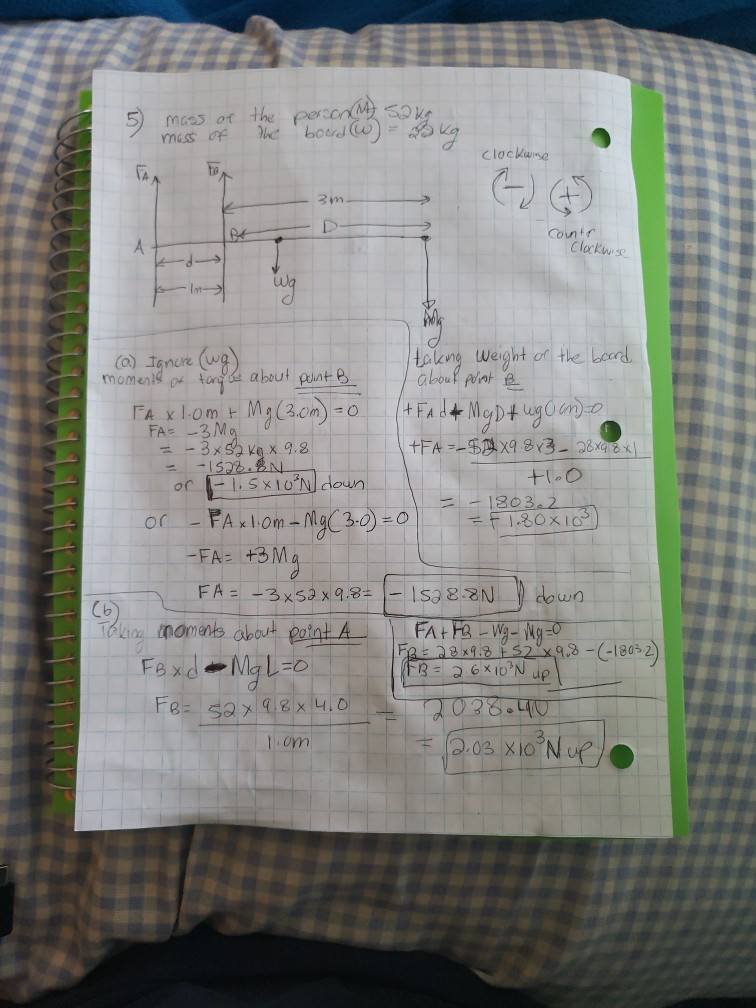 5) mass of the person(M) 52kg
mass of the board(w) = 28kg
clockwise
(-) (+)
countr
clockwise
FA FB
3m
D
A B
d
1m
wg
Mg
(a) Ignore (wg)
moments or torque about point B
FA x 1.0m + Mg(3.0m) = 0
FA = -3Mg
= -3x52kg x 9.8
= -1528.8N
or -1.5x10³N down
or -FAx1.0m - Mg(3.0) = 0
-FA = +3Mg
FA = -3x52x9.8 = -1528.8N down
taking weight of the board
about point B
+FAd + MgD + wg(1m)=0
+FA = -52x9.8x3 - 28x9.8x1
+1.0
= -1803.2
= -1.80x10³
(b)
Taking moments about point A
FBxd - MgL=0
FB = 52 x 9.8 x 4.0
1.0m
= 2038.4N
= 2.03 x10³N up
FA+FB - Wg - Mg=0
FB = 28x9.8 + 52 x 9.8 - (-1803.2)
FB = 2.6x10³N up